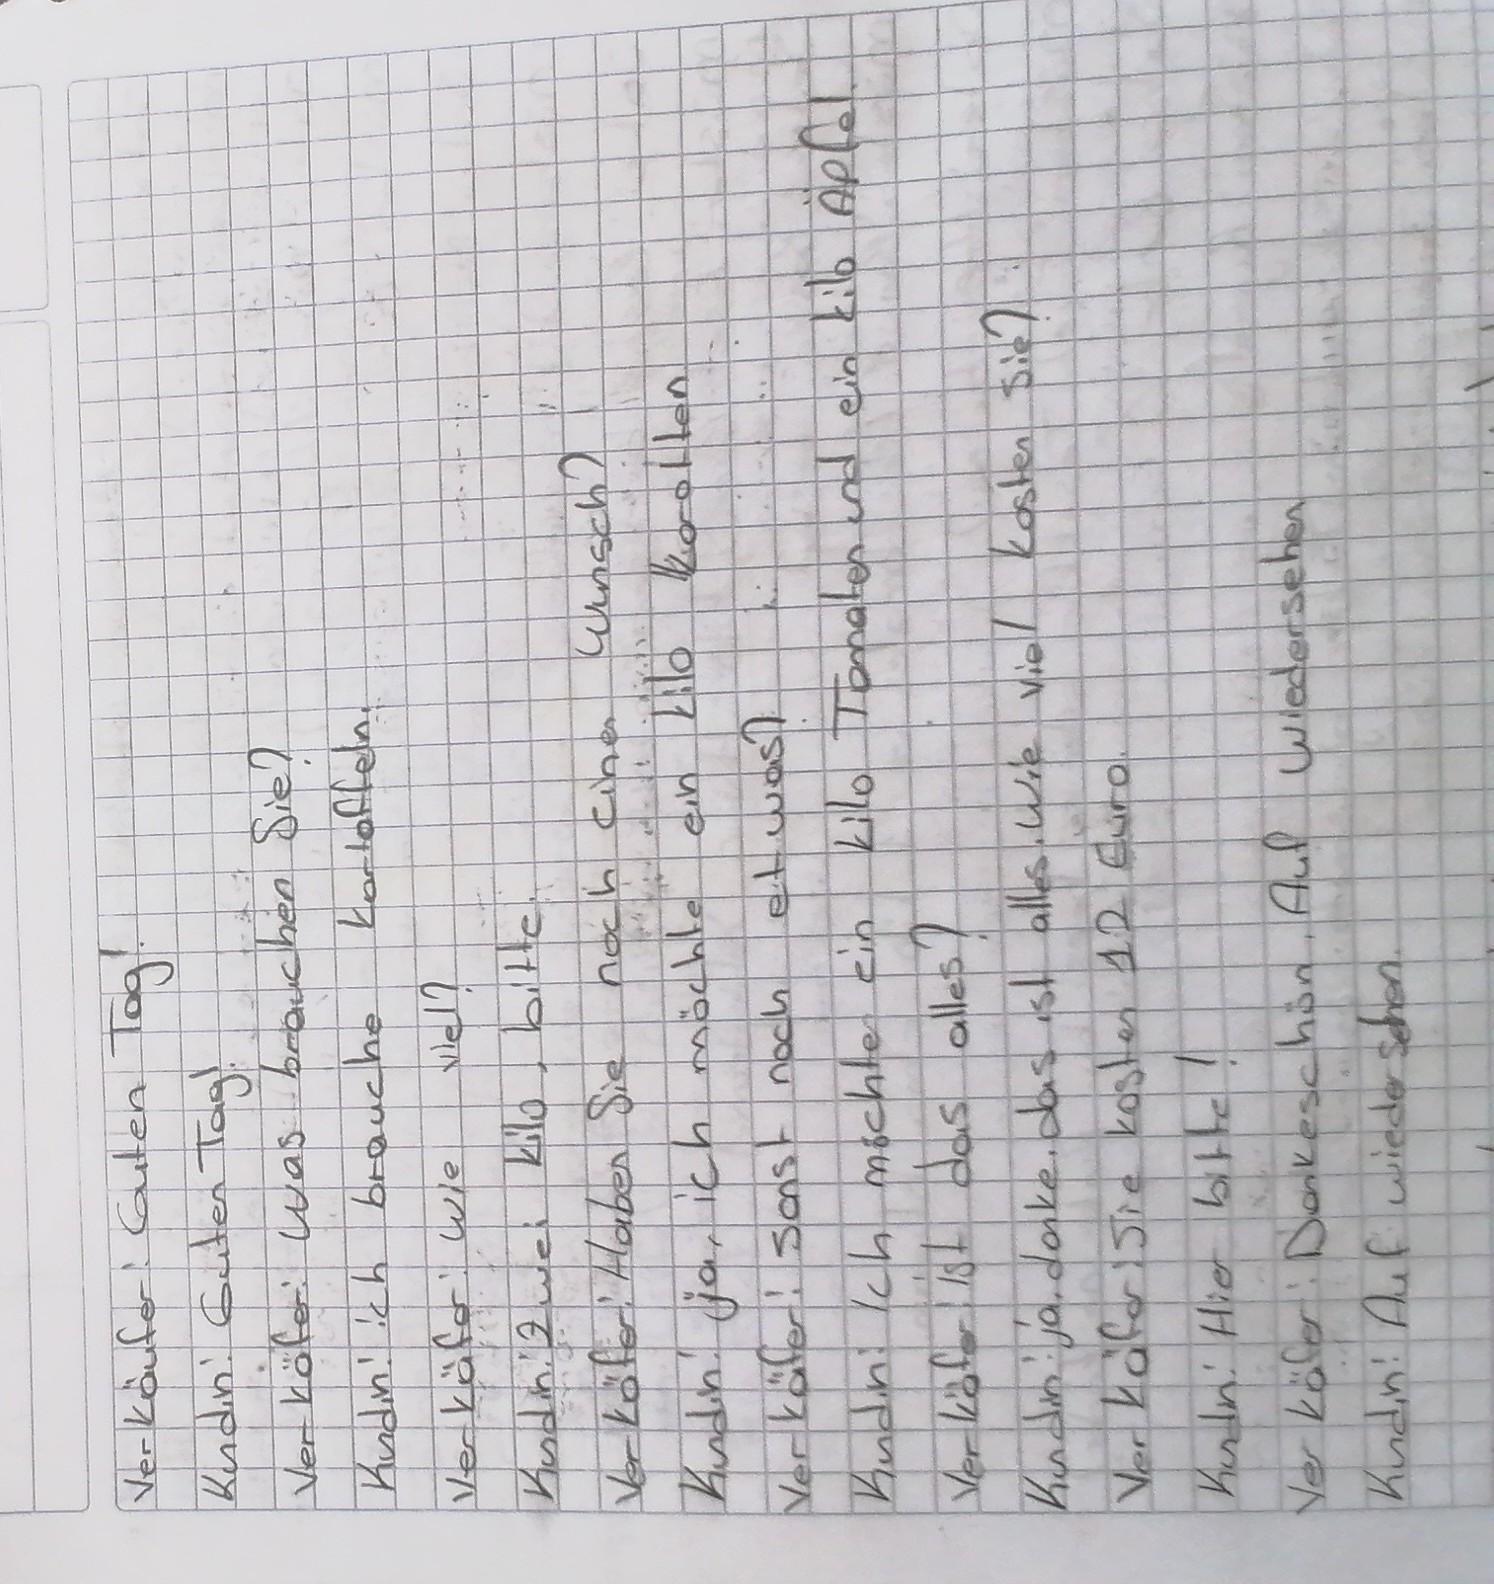 Verkäufer: Guten Tag!
Kundin: Guten Tag!
Verkäfer: Was brauchen Sie?
Kundin: ich brauche kartoffeln.
Verkäfer: Wie viel?
Kundin: Zwei kilo, bitte.
Verkäfer: Haben Sie noch einen Wunsch?
Kundin: ja, ich möchte ein kilo Karotten
Verkäfer: sonst noch etwas?
Kundin: Ich möchte ein kilo Tomaten und ein kilo Äpfel
Verkäfer: ist das alles?
Kundin: ja, danke, das ist alles. Wie viel kosten sie?
Verkäfer: Sie kosten 12 Euro.
Kundin: Hier bitte!
Verkäfer: Dankeschön. Auf wiedersehen
Kundin: Auf wiedersehen